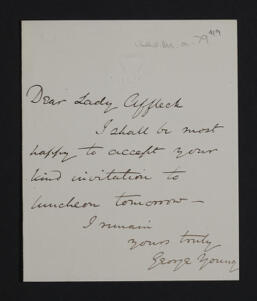 Dear Lady Affleck
I shall be most
happy to accept your
kind invitation to
luncheon tomorrow —
I remain
yours truly
George Young